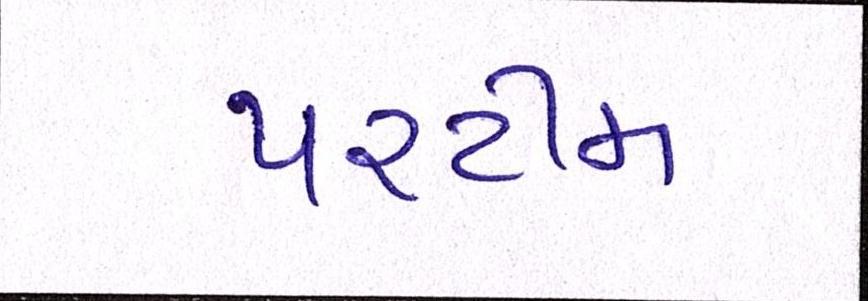 પરટીમ